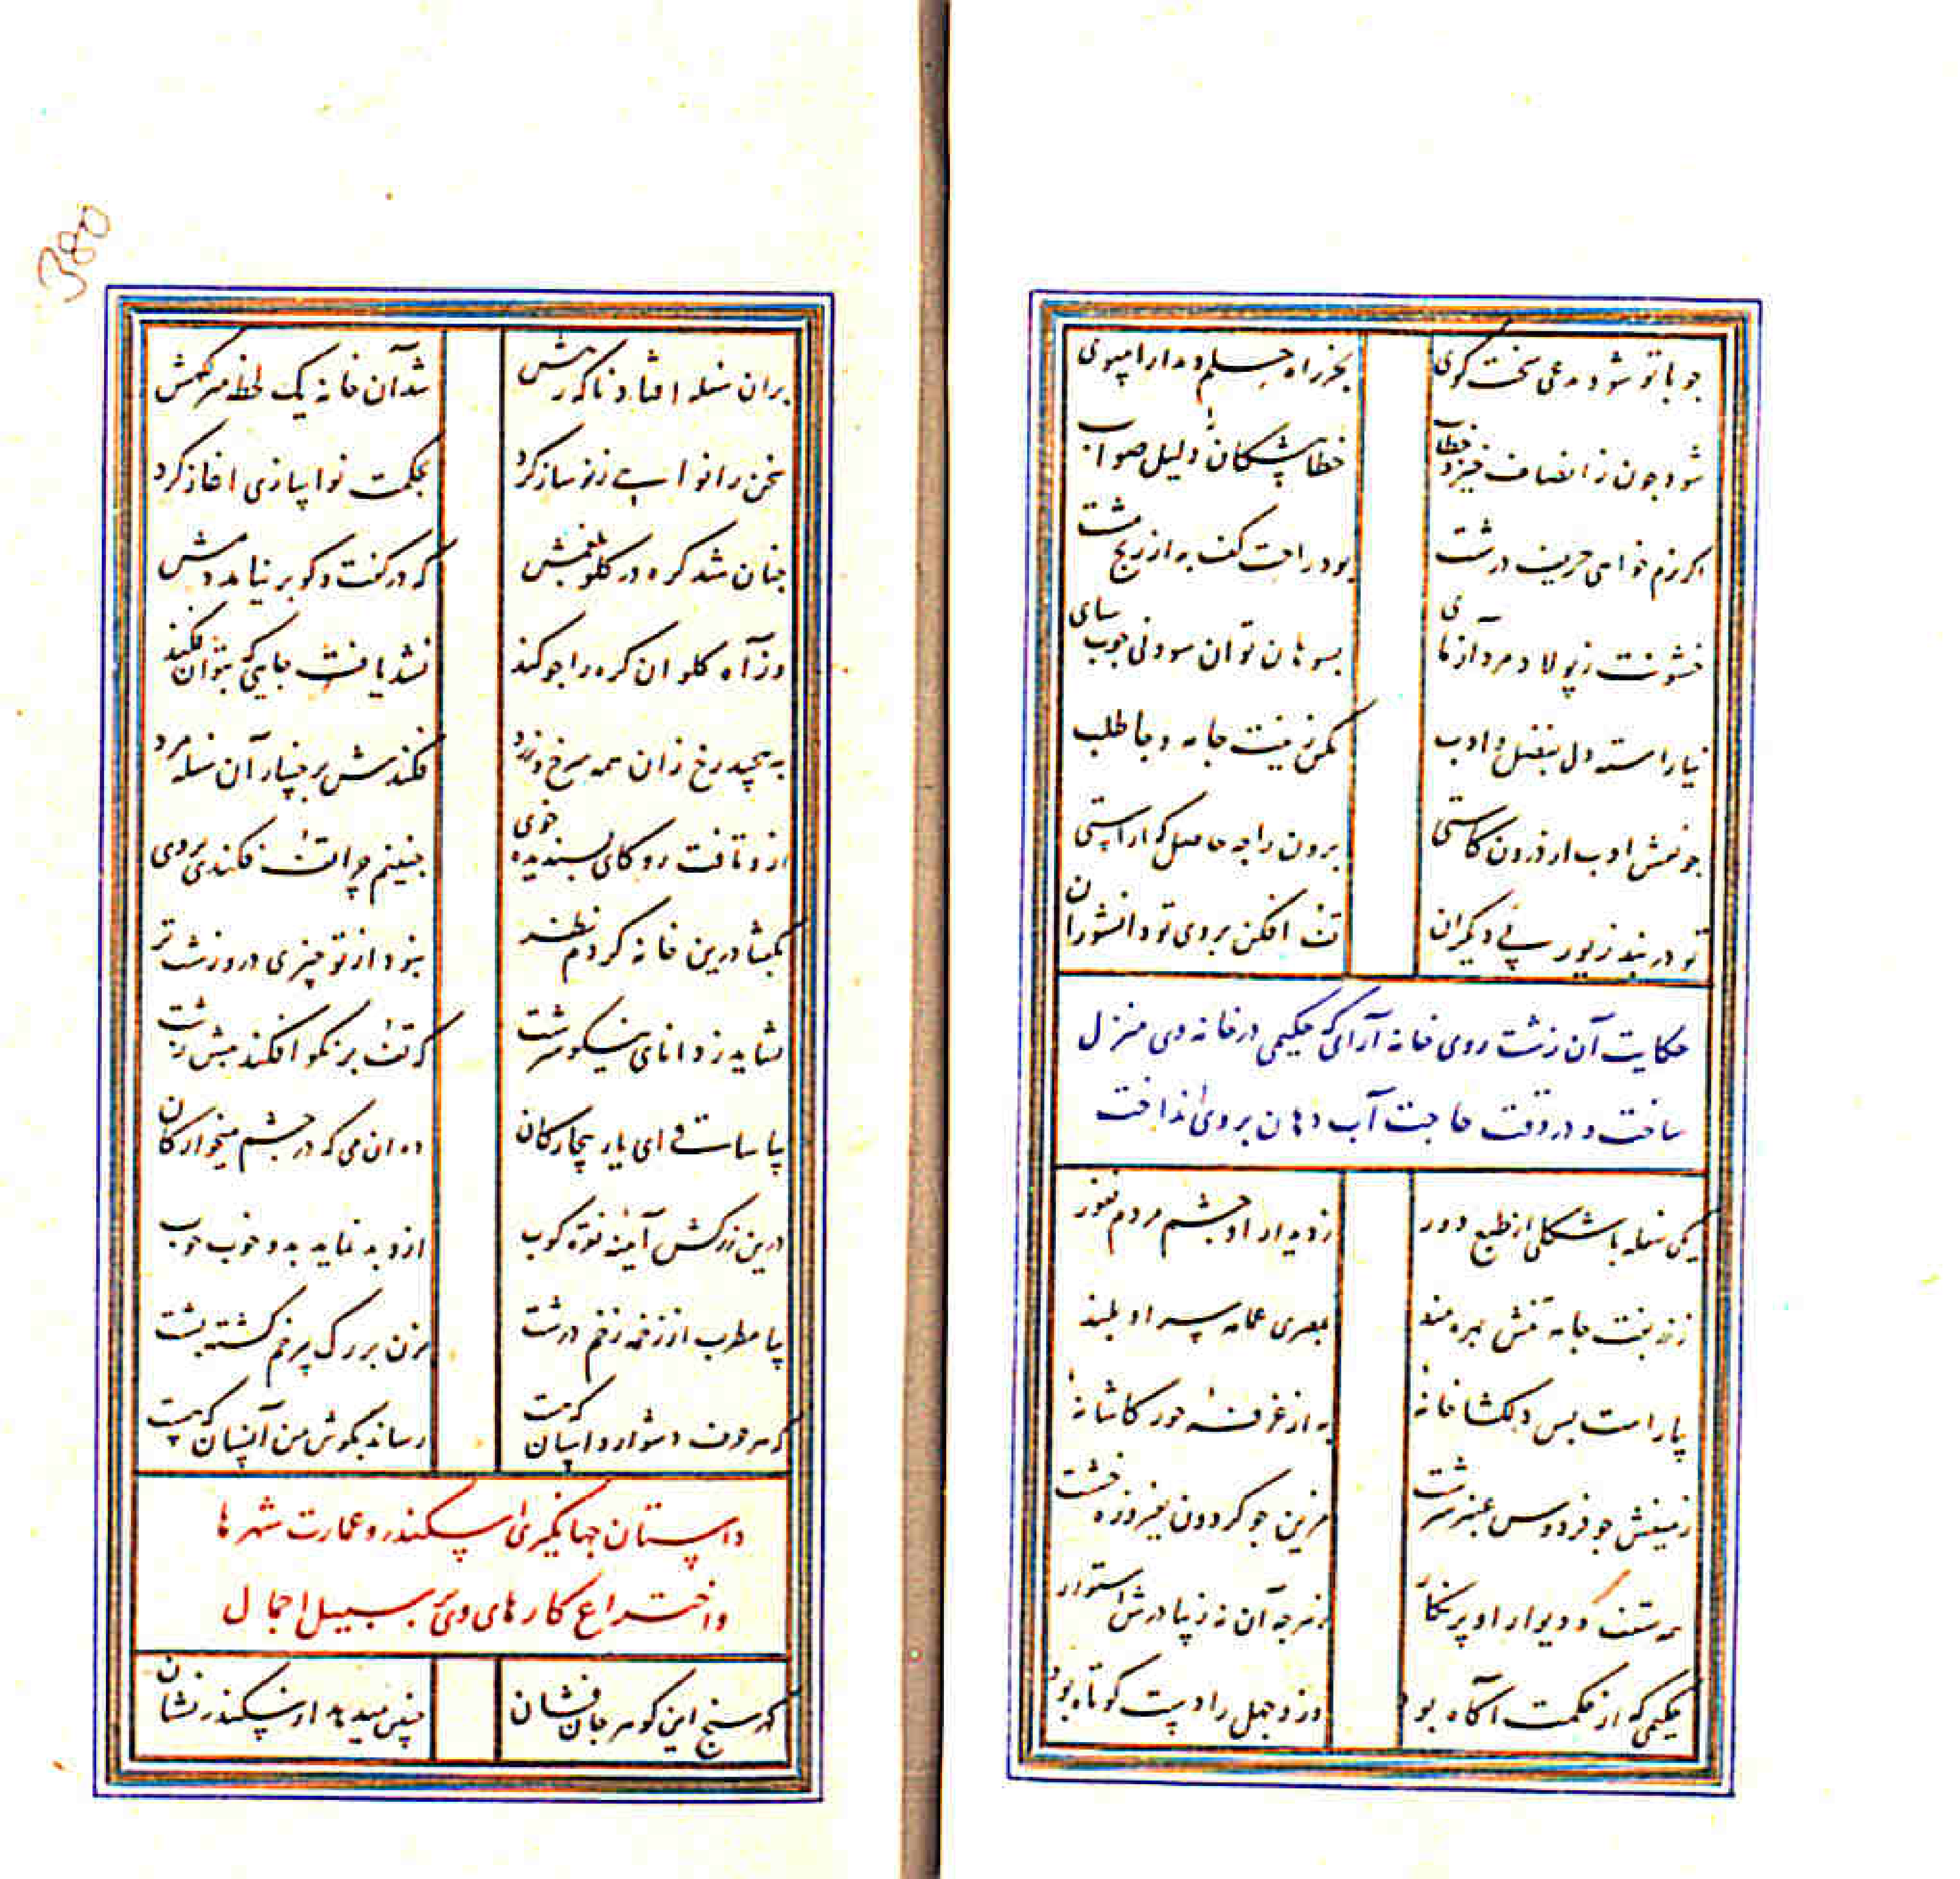 چو با تو شود مدعی سخت گوی بجز راه حلم و مدارا مپوی
شود چون ز انصاف خیزد خطاب خطا پیشگان را دلیل صواب
اگر نرم خواهی حریف درشت بود راحت کف به از رنج مشت
خشونت ز پولاد مرد آزمای بسوهان توان سود نی چوب سای
نیاراسته دل بفضل و ادب مکن زینت جامه و جا طلب
چو نقش ادب از درون کاستی برون را چه حاصل که آراستی
تو در بند زیور پی دیگران تف افکن بروی تو دانشوران
حکایت آن زشت روی خانه آرای که حکیمی در خانه وی منزل
ساخت و در وقت حاجت آب دهان بر وی انداخت
یکی سفله با شکلی از طبع دور ز دیدار او چشم مردم نفور
ز زربفت جامه تنش بهره مند بمصری عمامه سر او بلند
بیاراست بس دلگشا خانهٔ به از غرفهٔ حور کاشانهٔ
زمینش چو فردوس عنبر سرشت مزین چو گردون بفیروزه خشت
همه سقف و دیوار او پر نگار
حکیمی که از حکمت آگاه بود وزو جهل را دست کوتاه بود
380
بران سفله افتاد ناگه رهش شد آن خانه یک لحظه منزلگهش
سخن را نوایی ز نو ساز کرد بحکمت نوا سازی آغاز کرد
چنان شد گره در گلو بلغمش که در گفت و گو بر نیامد دمش
وز آه گلو آن گره را چو کند نشد یافت جایی که بتوان فکند
بپیچید رخ زان همه سرخ و زرد فکندش بر خسار آن سفله مرد
ازو تافت رو کای پسندیده خوی چنینم چرا تف فکندی بروی
بگفتا درین خانه کردم نظر نبود از تو چیزی درو زشت تر
نشاید ز دانای نیکو سرشت که تف بر نکو افکند پیش زشت
بیا ساقی ای یار بیچارگان ده آن می که در چشم میخوارگان
درین زرکش آیینهٔ نقره کوب ازو بد نماید بد و خوب خوب
بیا مطرب از زخمه زخم درشت بزن بر رگ پیر خم گشته پشت
که هر حرف دشوار و آسان که هست رساند بگوش من آنسان که هست
داستان جهانگیری اسکندر و عمارت شهرها
و اختراع کارهای وی بر سبیل اجمال
گهر سنج این گوهر جان فشان چنین میدهد از سکندر نشان